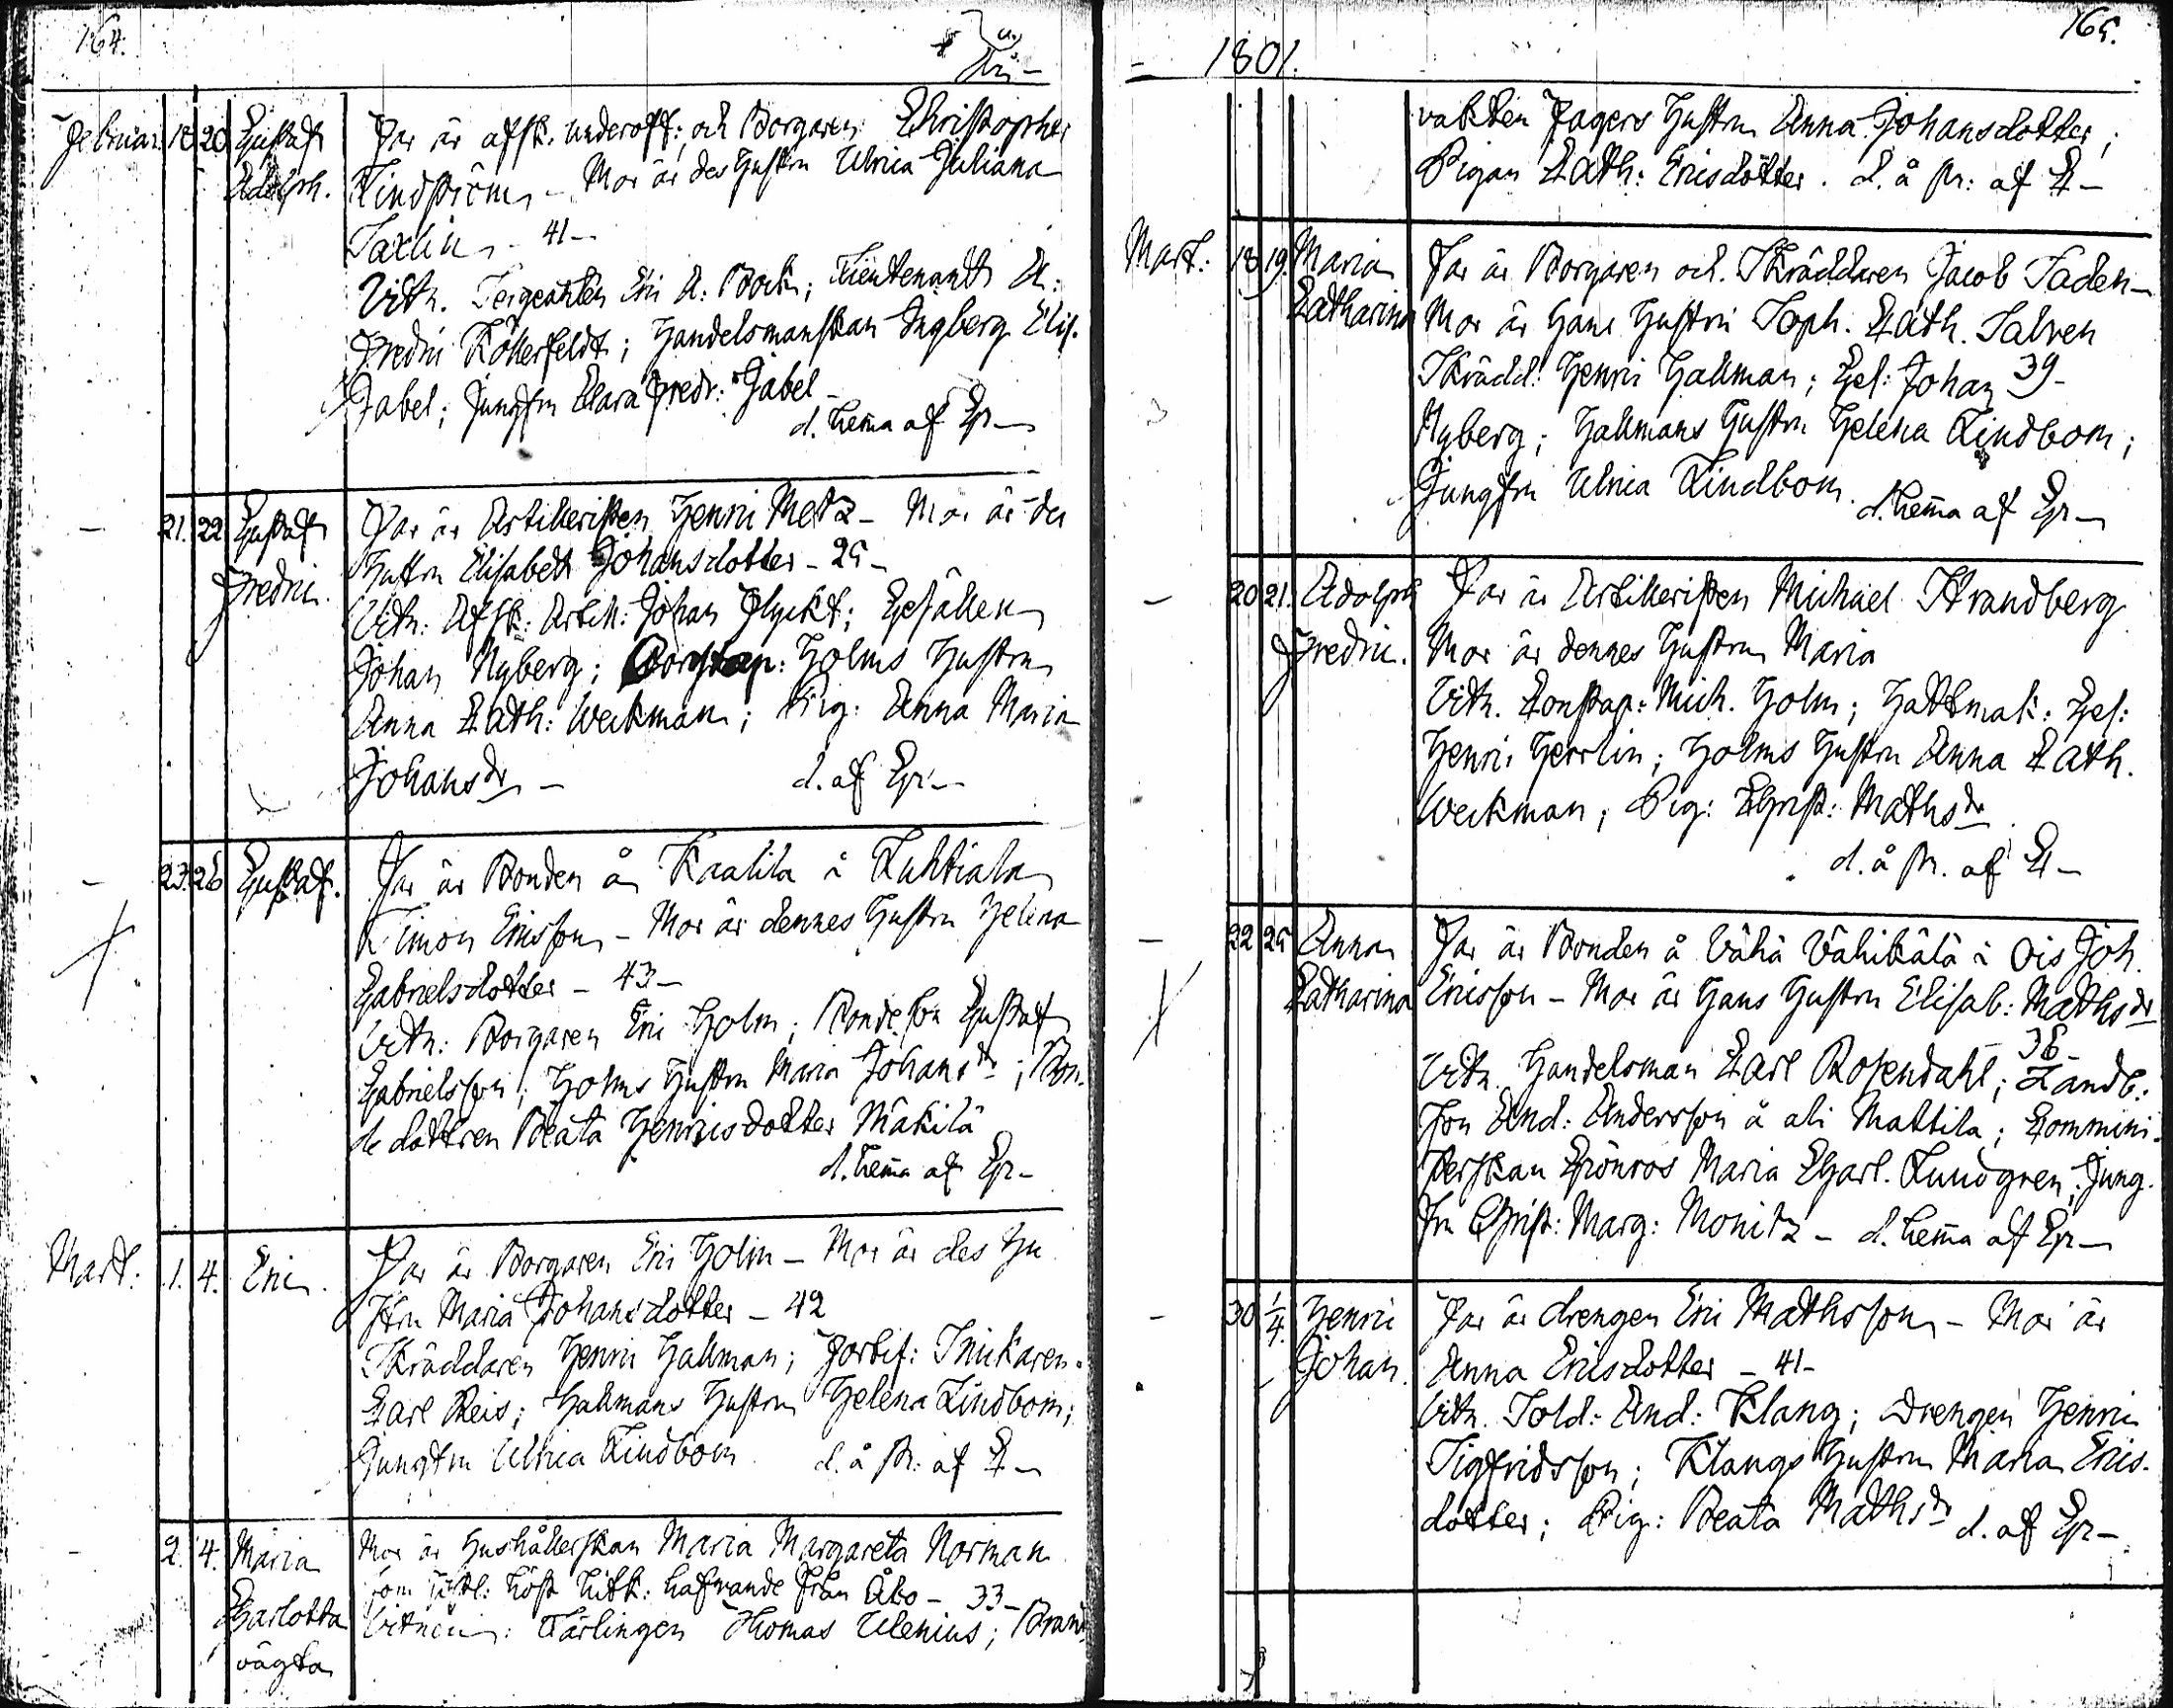 164.
Februar. 18 20 Gustaf Adolph. Far är afsk. underoff: och Borgaren Christopher
Lindström - Mor är des Hustru Ulrica Juliana
Saxlin - 41 -
Vitn. Sergeanten Eric A: Bock; Lieutenants A:
Fredric Rotterfeldt; Handelsmanskan Ingberg Elis.
Jabel; Jungfru Clara Fredr: Jabel -
d. hema af Gr -
- 21. 22 Gustaf Fredric. Far är Artilleristen Henric Metz - Mor är des
Hustru Elisabeth Johansdotter - 25 -
Vitn: Afsk: Artill: Johan Flyckt; Gesällen
Johan Nyberg; Holms Hustru
Anna Cath: Weckman; Pig: Anna Maria
Johansdr - d. af Gr -
- 23. 26 Gustaf. Far är Bonden å Kaalila i Luhtiala
Simon Ericsson - Mor är dennes Hustru Helena
Gabrielsdotter - 43 -
Vitn: Borgaren Eric Holm; Bonde son Gustaf
Gabrielsson; Holms Hustru Maria Johansdr; Bon-
de dottren Beata Henricsdotter Mäkilä
d. hema af Gr -
Mart: 1. 4. Eric. Far är Borgaren Eric Holm - Mor är des Hu
stru Maria Johansdotter - 42
Skräddaren Henric Hallman; Fortif: Snickaren
Carl Reis; Hallmans Hustru Helena Lindbom;
Jungfru Ulrica Lindbom d. å pr: af C -
- 2. 4. Maria Charlotta oägta Mor är Hushållerskan Maria Margareta Norman
som sistl: höst hitk: hafvande från Åbo - 33 -
Vitnen: Lärlingen Thomas Ulenius; Brand
= 1801. 165.
vakten Jagers Hustru Anna Johansdotter;
Pigan Cath: Ericsdotter. d. å pr: af C -
Mart: 18 19. Maria Catharina Far är Borgaren och Skräddaren Jacob Saden -
Mor är Hans Hustru Soph. Cath. Salven
Skrädd: Henric Hallman; Gef: Johan 39 -
Nyberg; Hallmans Hustru Helena Lindbom;
Jungfru Ulrica Lindbom. d. hema af Gr -
- 20 21. Adolph Fredric. Far är Artilleristen Michael Strandberg
Mor är dennes Hustru Maria
Vitn. Constap: Mich. Holm; Hattmak: Gef:
Henric Herrlin; Holms Hustru Anna Cath.
Weckman; Pig: Christ: Mathsdr
d. å pr. af C -
- 22 25 Anna Catharina Far är Bonden å Vähä Vähikälä i Ois Joh.
Ericsson - Mor är Hans Hustru Elisab: Mathsdr
- 38 -
Vitn. Handelsman Carl Rosendahl; Landb:
son And: Andersson å ali Mattila; Commini-
sterskan Grönroos Maria Charl. Lundgren; Jung-
fru Christ: Marg: Monitz - d. hema af Gr -
- 30 1/4. Henric Johan. Far är drengen Eric Mathsson - Mor är
Anna Ericsdotter - 41 -
Vitn. Sold: And: Klang; Drengen Henric
Sigfridsson; Klangs Hustru Maria Erics-
dotter; Pig: Beata Mathsdr d. af Gr -